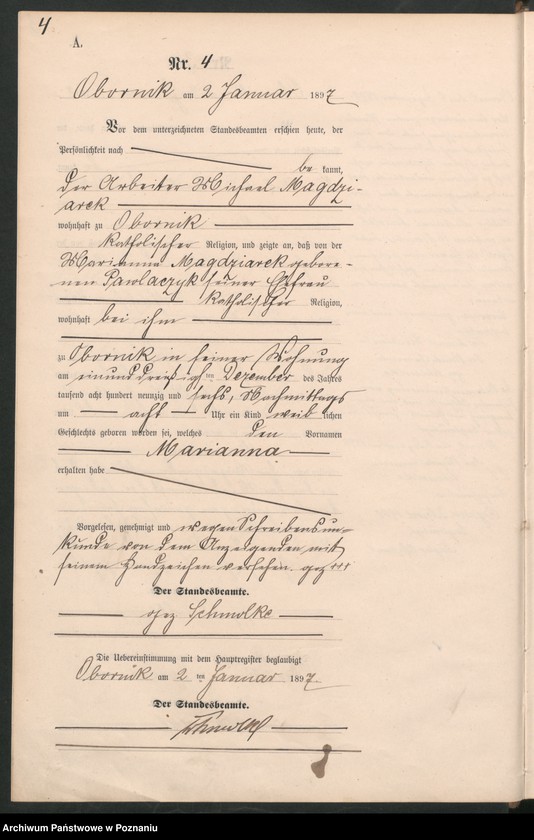 4
A.
Nr. 4
Obornik am 2 Januar 1897
Vor dem unterzeichneten Standesbeamten erschien heute, der
Persönlichkeit nach
be kannt,
der Arbeiter Michael Magdzi-
arek
wohnhaft zu Obornik
katholischer Religion, und zeigte an, daß von der
Marianna Magdziarek gebore-
nen Pawlaczyk seiner Ehefrau
katholischer Religion,
wohnhaft bei ihm
zu Obornik in seiner Wohnung
am einunddreißigsten Dezember des Jahres
tausend acht hundert neunzig und sechs, Nachmittags
um acht Uhr ein Kind weib lichen
Geschlechts geboren worden sei, welches den Vornamen
Marianna
erhalten habe
Vorgelesen, genehmigt und wegen Schreibensun-
kunde von dem Anzeigenden mit
seinem Handzeichen versehen. gez +++
Der Standesbeamte.
gez Schmolke
Die Uebereinstimmung mit dem Hauptregister beglaubigt
Obornik am 2 ten Januar 1897
Der Standesbeamte.
Schmolke
Archiwum Państwowe w Poznaniu